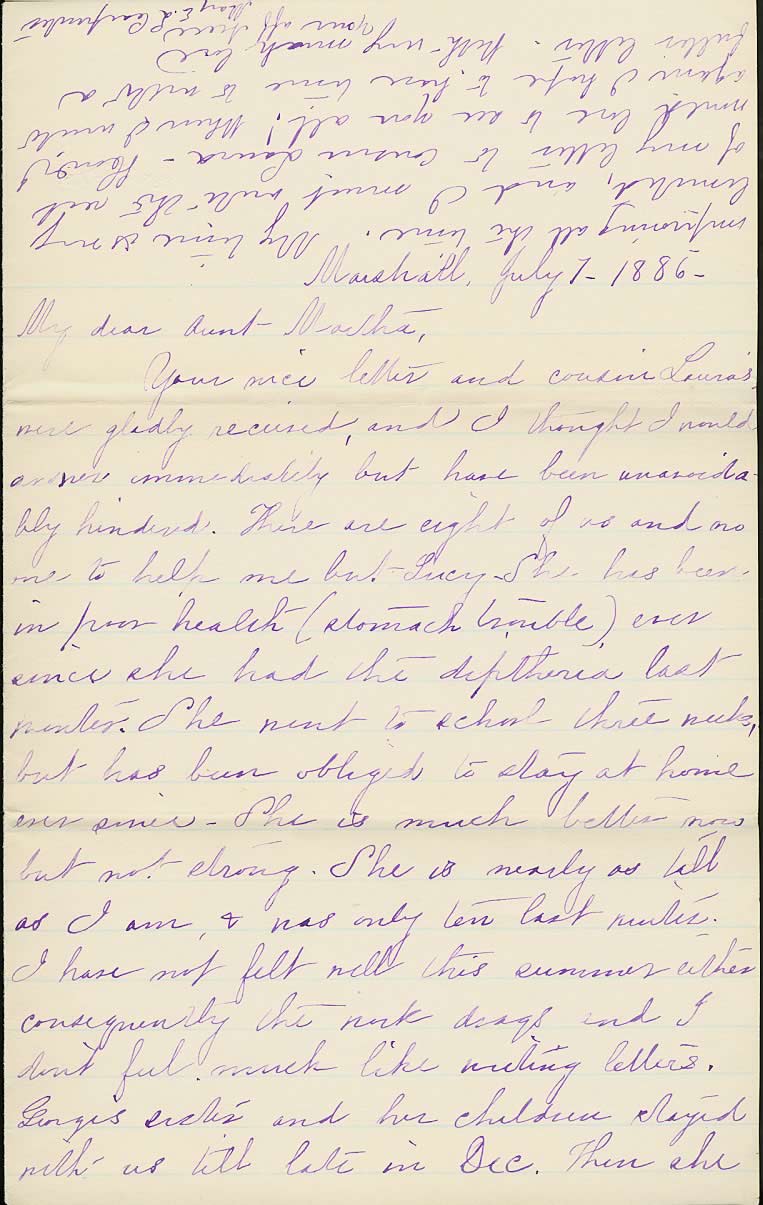 Marshall, July 1 - 1885 -
My dear Aunt Martha,
Your nice letter and cousin Laura's
were gladly received, and I thought I would
answer immediately but have been unavoida-
bly hindered. There are eight of us and no
one to help me but Lucy. She has been
in poor health (stomach trouble) ever
since she had the diptheria last
winter. She went to school three weeks,
but has been obliged to stay at home
ever since - She is much better now
but not strong. She is nearly as tall
as I am, & was only ten last winter.
I have not felt well this summer either
consequently the work drags and I
don't feel much like writing letters.
Georges sister and her children stayed
with us till late in Dec. Then she
improving all the time. My time is very
limited, and I must write the rest
of my letter to Cousin Laura - How I
would love to see you all! When I write
again I hope to have time to write a
fuller letter. With very much love
Your aff niece
Mary E. L. Carpenter